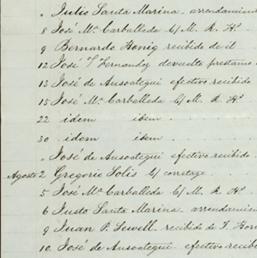 " Julio Santa Marina, arrendamien
8 José Ma. Carballeda c/ M. R. Ha.
9 Bernardo Honig recibido de él
12 José Fernandez devuelto prestamo
13 José de Ansoategui efectivo recibido
15 José Ma. Carballeda c/ M. R. Ha.
22 idem idem
30 idem idem
" José de Ansoategui efectivo recibido
Agosto 2 Gregorio Solis c/ corretage
5 José Ma. Carballeda c/ M. R. Ha.
6 Justo Santa Marina, arrendamien
9 Juan P. Sewell, recibido de T.
10 José de Ansoategui efectivo recib